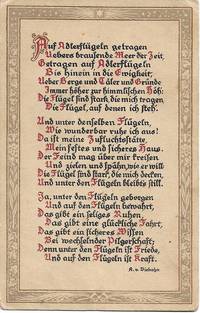 Auf Adlerflügeln getragen
Uebers brausende Meer der Zeit,
Getragen auf Adlerflügeln
Bis hinein in die Ewigkeit;
Ueber Berge und Täler und Gründe
Immer höher zur himmlischen Höh:
Die Flügel sind stark, die mich tragen,
Die Flügel, auf denen ich steh.
Und unter denselben Flügeln,
Wie wunderbar ruhe ich aus!
Da ist meine Zufluchtsstätte,
Mein festes und sicheres Haus.
Der Feind mag über mir kreisen
Und zielen und spähn, wie er will:
Die Flügel sind stark, die mich decken,
Und unter den Flügeln bleibts still.
Ja, unter den Flügeln geborgen
Und auf den Flügeln bewahrt,
Das gibt ein seliges Ruhen,
Das gibt eine glückliche Fahrt,
Das gibt ein sicheres Wissen
Bei wechselnder Pilgerschaft;
Denn unter den Flügeln ist Friede,
Und auf den Flügeln ist Kraft.
A. v. Viebahn